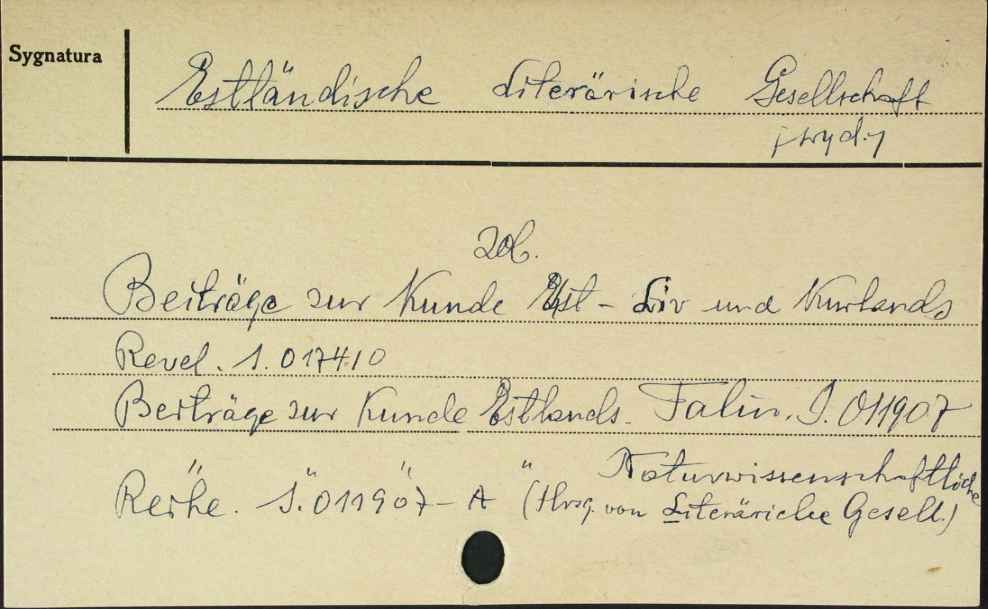 Sygnatura
Estländische Literärische Gesellschaft
(wyd.)
zob.
Beiträge zur Kunde Est - Liv und Kurlands
Revel. S. 017410
Beiträge zur Kunde Estlands. Talin. S. 011907
" " " " Naturwissenschaftliche
Reihe. S. 011907 - A (Hrsg. von Literäriche Gesell.)